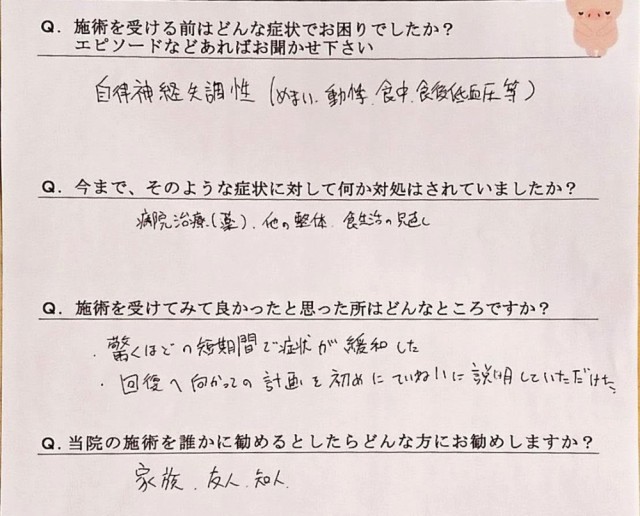 Q. 施術を受ける前はどんな症状でお困りでしたか？
エピソードなどあればお聞かせ下さい
自律神経失調性 (めまい、動悸、食中、食後低血圧等)
Q. 今まで、そのような症状に対して何か対処はされていましたか？
病院治療(薬)、他の整体、食生活の見直し
Q. 施術を受けてみて良かったと思った所はどんなところですか？
・驚くほどの短期間で症状が緩和した
・回復へ向かっての計画を初めにていねいに説明していただけた。
Q. 当院の施術を誰かに勧めるとしたらどんな方にお勧めしますか？
家族、友人、知人